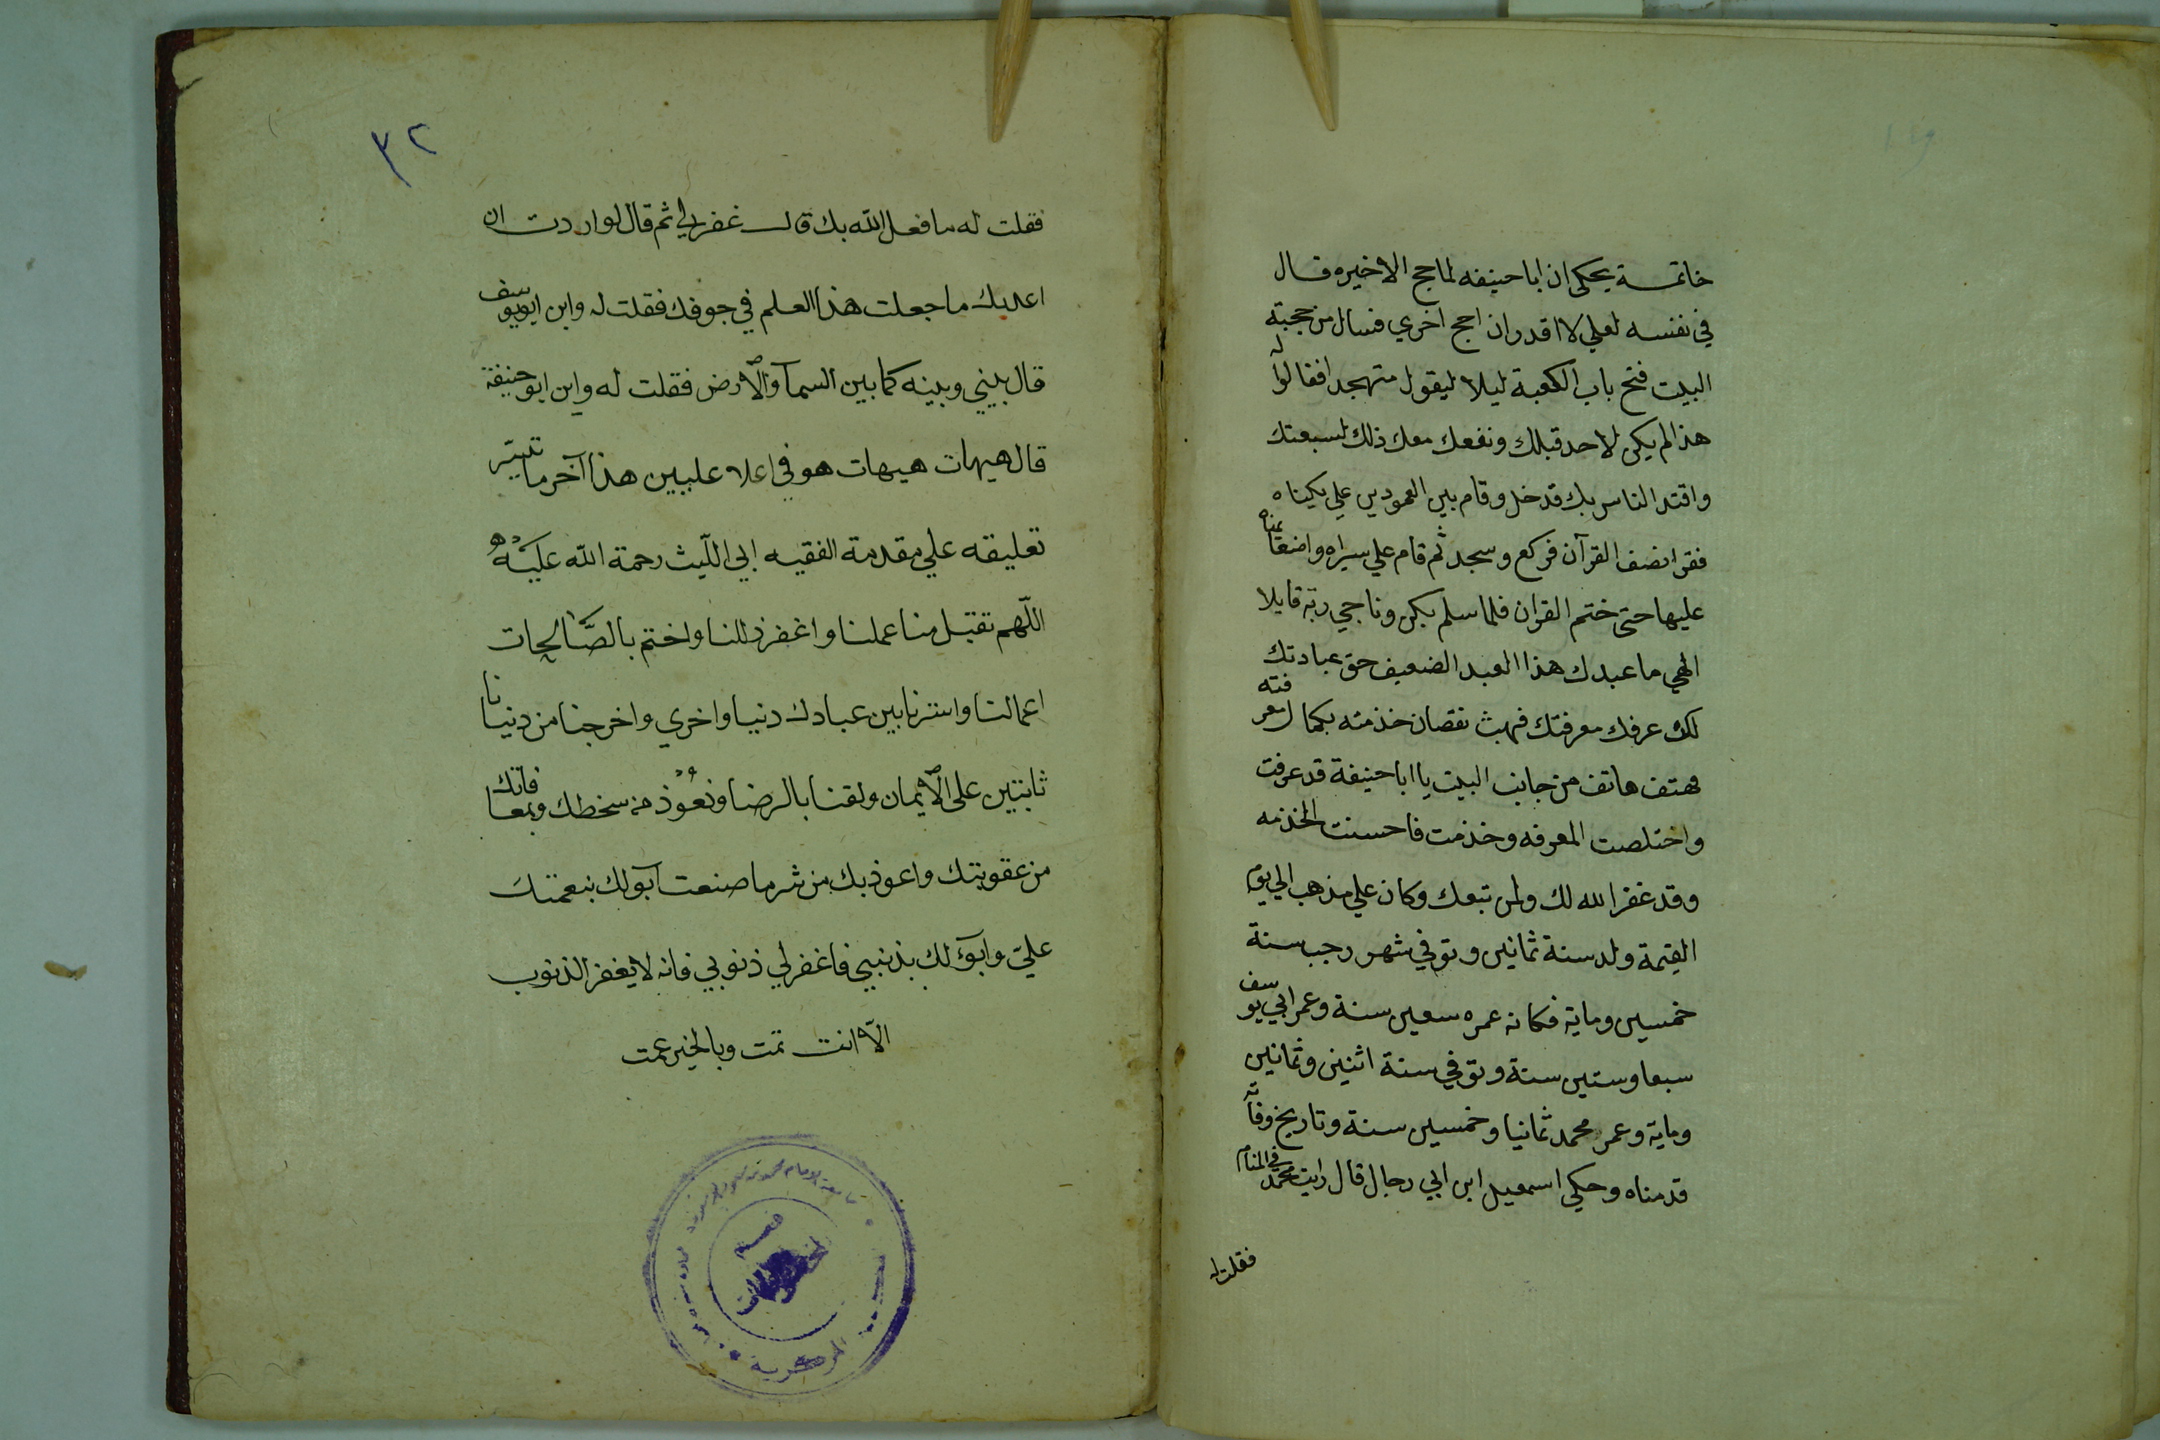 خاتمـة يحكى ان ابا حنيفه لما حج الاخيره قـال
في نفسه لعلي لا اقدر ان احج اخري فسال من حجبة
البيت فتح باب الكعبة ليلا ليقول متهجدا فقالوا له
هذا لم يكن لاحد قبلك ونفعك معك ذلك لسبعتك
واقتد الناس بك فدخل وقام بين العمودين علي
فقرا نصف القرآن فركع وسجد ثم قام علي سيراه واضعا يمناه
عليها حتى ختم القران فلما سلم بكى وناجي ربه قايلا
الهي ما عبدك هذا العبد الضعيف حق عبادتك
لكن عرفك معرفتك فهب نقصان خذمته بكمال معرفته
فهتف هاتف من جانب البيت يا ابا حنيفة قد عرفت
واختلصت المعرفه وخذمت فاحسنت الخذمه
وقد غفر الله لك ولمن تبعك وكان علي مذهب الي يوم
القيمة ولد سنة ثمانين وتوفي شهر رجب سنة
خمسين وماية فكانه عمره سعين سنة وعمر ابي يوسف
سبعا وستين سنة وتوفي سنة اثنين وثمانين
وماية وعمر محمد ثمانيا وخمسين سنة وتاريخ وفاته
قدمناه وحكي اسمعيل ابن ابي رجال قال رايت محمد في المنام
فقلت له
٣٢
فقلت له ما فعل الله بك قال غفر لي ثم قال لو اردت ان
اعدبك ما جعلت هذا العلم في جوفك فقلت له واين ابو يوسف
قال بيني وبينه كما بين السمآ والارض فقلت له واين ابو حنيفة
قال هيهات هيهات هو في اعلا عليين هذا آخر ما تيسر
تعليقه علي مقدمة الفقيه ابي الليث رحمة الله عليه
اللهم تقبل منا عملنا واغفر ذللنا واختم بالصالحات
اعمالنا واسترنا بين عبادك دنيا واخري واخرجنا من دنيانا
ثابتين على الايمان ولقنا بالرضا ونعوذ من سخطك وبمعافاتك
من عقوبتك واعوذ بك من شر ما صنعت آبو لك بنعمتك
علي وابوؤ لك بذنبي فاغفر لي ذنوبي فانه لا يغفر الذنوب
الا انت تمت وبالخير عمت
قسم
المخطوطات
المركزية